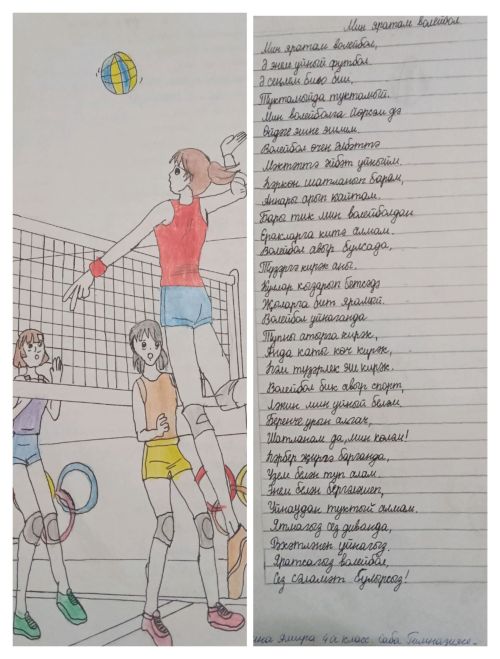 Мин яратам волейбол
Мин яратам волейбол,
Ә энем уйный футбол
Ә сеңлем бию дип,
Туктамыйда туктамый.
Мин волейболга йөрсәм дә
Өйдәге эшне эшлим.
Волейбол өчен әлбәттә
Мәктәптә әйбәт укыйм.
Һәркөн шатланып барам,
Аннары арып кайтам.
Бары тик мин волейболдан
Еракларга китә алмам.
Волейбол авыр булсада,
Түзәргә кирәк аңа.
Куллар кызарып бетсәдә
Җыларга һич ярамый.
Волейбол уйнаганда
Тупны атарга кирәк,
Анда каты көч кирәк,
Һәм түзәрлек эш кирәк.
Волейбол бик авыр спорт,
Ләкин мин уйный беләм.
Беренче урын алгач,
Шатланам да, мин көләм!
Һәрбер җиргә барганда,
Үзем белән туп алам.
Энем белән бергәләшеп,
Уйнаудан туктый алмам.
Ятмагыз сез диванда,
Рәхәтләнеп уйнагыз.
Яратсагыз волейбол,
Сез сәламәт булырсыз!
Ямира 4а класс. Саба Гимназиясе.